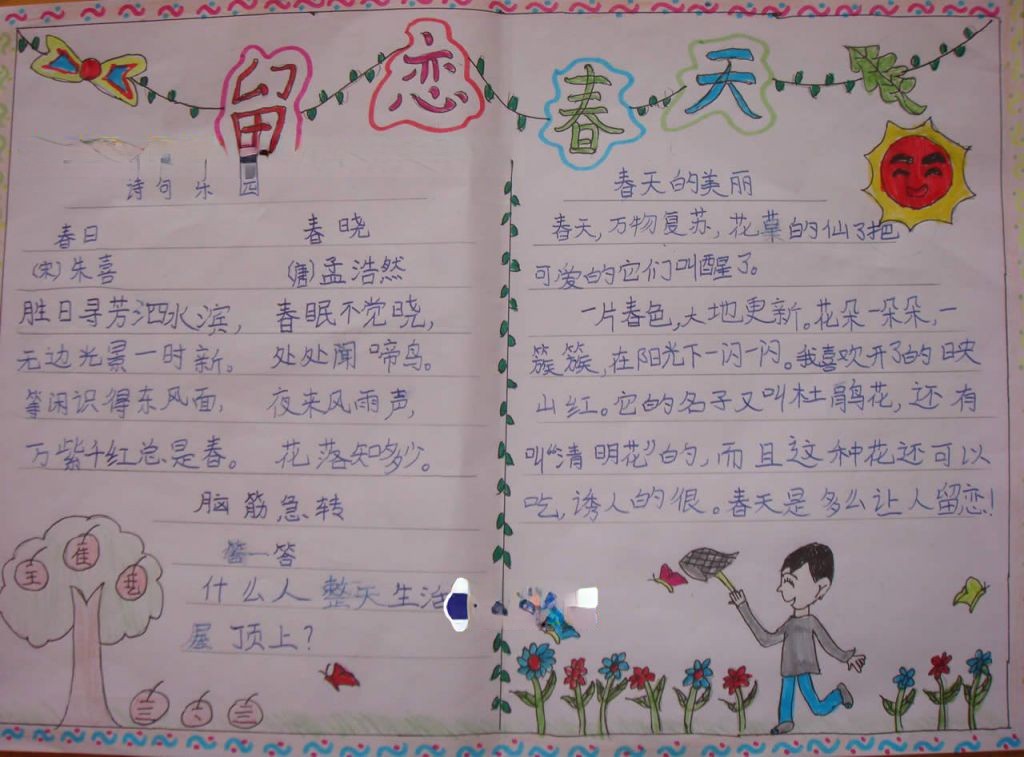 留恋春天
诗句乐园
春日
(宋)朱喜
胜日寻芳泗水滨,
无边光景一时新。
等闲识得东风面,
万紫千红总是春。
春晓
(唐)孟浩然
春眠不觉晓,
处处闻啼鸟。
夜来风雨声,
花落知多少。
脑筋急转
答一答
什么人整天生活
屋顶上?
春天的美丽
春天,万物复苏,花草的仙了把
可爱的它们叫醒了。
一片春色,大地更新。花朵一朵朵,一
簇簇,在阳光下一闪一闪。我喜欢开了的映
山红。它的名子又叫杜鹃花,还有
叫“清明花”的,而且这种花还可以
吃,诱人的很。春天是多么让人留恋!